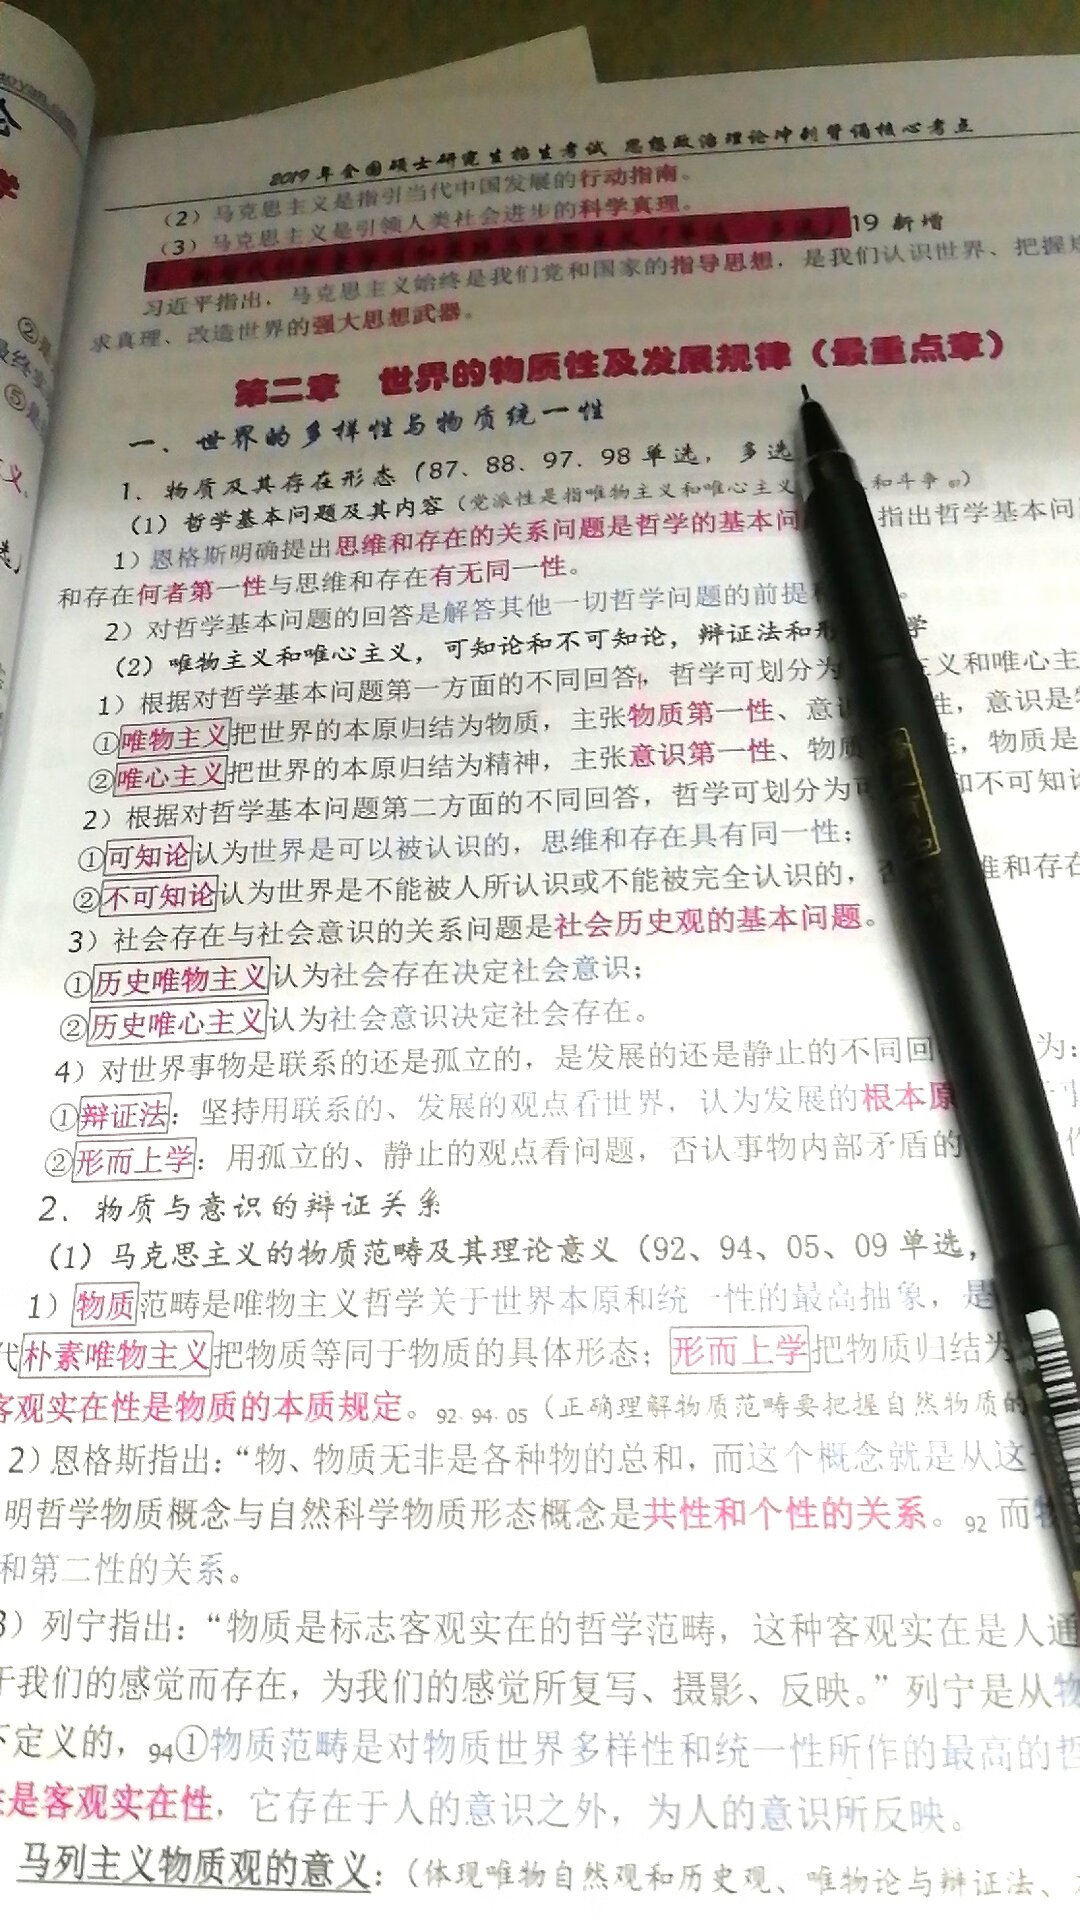 2019年全国硕士研究生招生考试 思想政治理论冲刺背诵核心考点
（2）马克思主义是指引当代中国发展的行动指南。
（3）马克思主义是引领人类社会进步的科学真理。
19 新增
习近平指出，马克思主义始终是我们党和国家的指导思想，是我们认识世界、把握
求真理、改造世界的强大思想武器。
第二章 世界的物质性及发展规律（最重点章）
一、世界的多样性与物质统一性
1．物质及其存在形态（87、88、97、98单选，多选
（1）哲学基本问题及其内容（党派性是指唯物主义和唯心主义 和斗争
1）恩格斯明确提出思维和存在的关系问题是哲学的基本问 指出哲学基本问
和存在何者第一性与思维和存在有无同一性。
2）对哲学基本问题的回答是解答其他一切哲学问题的前提
（2）唯物主义和唯心主义，可知论和不可知论，辩证法和形 学
1）根据对哲学基本问题第一方面的不同回答，哲学可划分为 主义和唯心主
①唯物主义把世界的本原归结为物质，主张物质第一性、意 性，意识是
②唯心主义把世界的本原归结为精神，主张意识第一性、物质 性，物质是
2）根据对哲学基本问题第二方面的不同回答，哲学可划分为可 和不可知论
①可知论认为世界是可以被认识的，思维和存在具有同一性；
②不可知论认为世界是不能被人所认识或不能被完全认识的， 维和存在
3）社会存在与社会意识的关系问题是社会历史观的基本问题。
①历史唯物主义认为社会存在决定社会意识；
②历史唯心主义认为社会意识决定社会存在。
4）对世界事物是联系的还是孤立的，是发展的还是静止的不同回 为：
①辩证法：坚持用联系的、发展的观点看世界，认为发展的根本原
②形而上学：用孤立的、静止的观点看问题，否认事物内部矛盾的
2．物质与意识的辩证关系
（1）马克思主义的物质范畴及其理论意义（92、94、05、09单选，
1）物质范畴是唯物主义哲学关于世界本原和统一性的最高抽象，是
代朴素唯物主义把物质等同于物质的具体形态；形而上学把物质归结为
客观实在性是物质的本质规定。92、94、05（正确理解物质范畴要把握自然物质的
2）恩格斯指出：“物、物质无非是各种物的总和，而这个概念就是从这
明哲学物质概念与自然科学物质形态概念是共性和个性的关系。92 而物
和第二性的关系。
3）列宁指出：“物质是标志客观实在的哲学范畴，这种客观实在是人通
于我们的感觉而存在，为我们的感觉所复写、摄影、反映。”列宁是从物
下定义的，94①物质范畴是对物质世界多样性和统一性所作的最高的哲
是客观实在性，它存在于人的意识之外，为人的意识所反映。
马列主义物质观的意义：（体现唯物自然观和历史观、唯物论与辩证法、